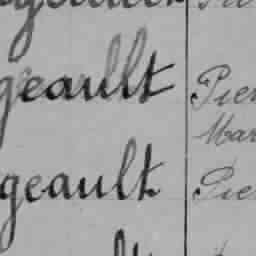 geault Pier
Mar
geault Pie